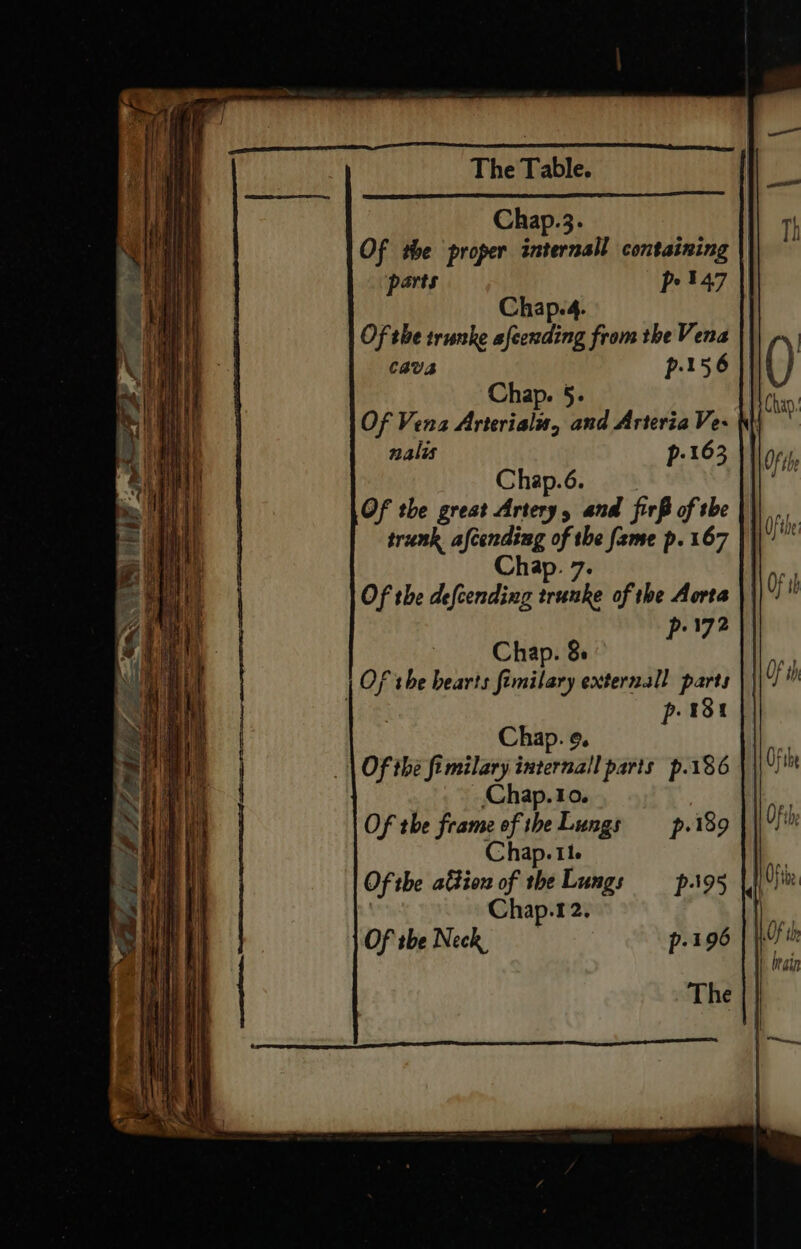 The Table.
Chap.3.
Of the proper internall containing
parts p. 147
Chap.4.
Of the trunke aſcending from the Vena
cava p.156
Chap. 5.
Of Vena Arterialis, and Arteria Ve-
nalis p.163
Chap.6.
Of the great Artery, and firſt of the
trunk aſcending of the ſame p. 167
Chap. 7.
Of the deſcending trunke of the Aorta
p. 172
Chap. 8.
Of the hearts ſimilary externall parts
p. 181
Chap. 9.
Of the ſimilary internall parts p.186
Chap.10.
Of the frame of the Lungs p.189
Chap.11.
Of the action of the Lungs p.195
Chap.12.
Of the Neck p.196
The
Th
O
Chap.
Of the
Of the
Of th
Of th
Of the
Of the
Of the
Of the
brain